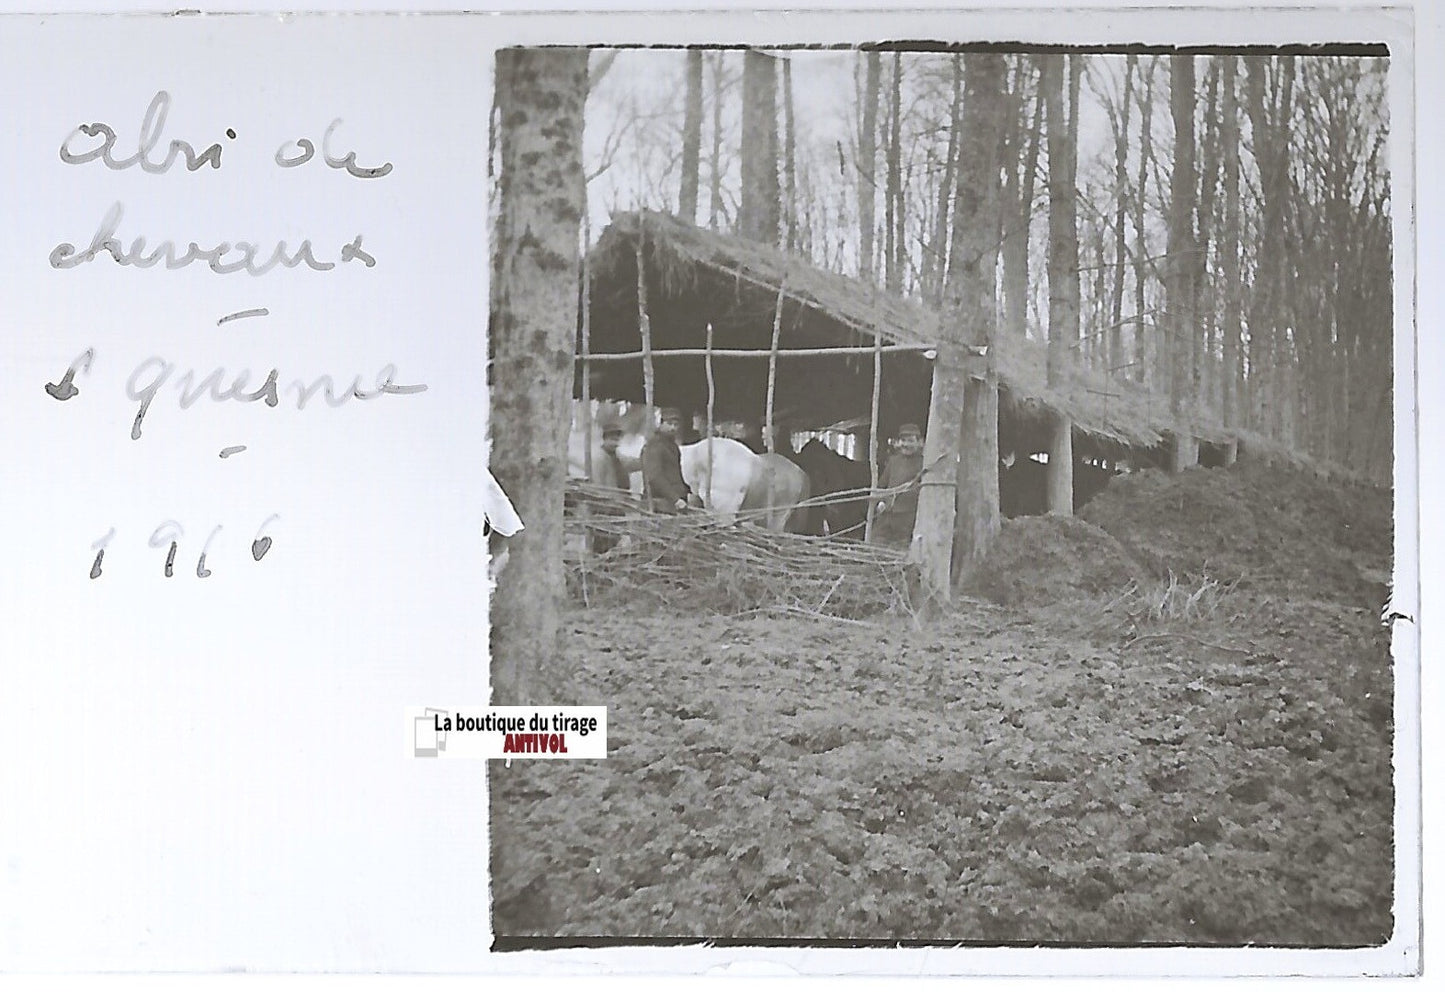 abri de
chevaux
-
s quesne
-
1916
La boutique du tirage
ANTIVOL